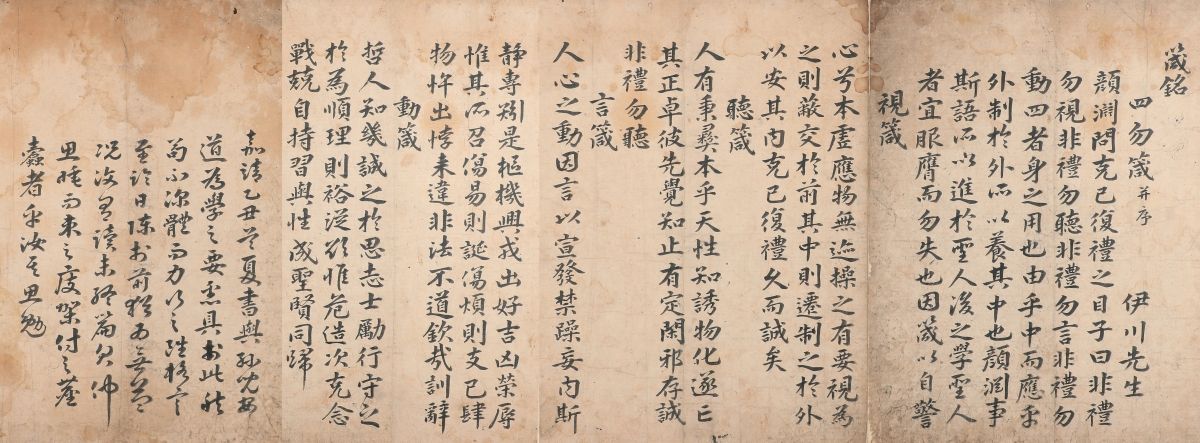 箴銘
四勿箴 并序 伊川先生
顔淵問克己復禮之目子曰非禮
勿視非禮勿聽非禮勿言非禮勿
動四者身之用也由乎中而應乎
外制於外所以養其中也顔淵事
斯語所以進於聖人後之學聖人
者宜服膺而勿失也因箴以自警
視箴
心兮本虛應物無迹操之有要視爲
之則蔽交於前其中則遷制之於外
以安其內克己復禮久而誠矣
聽箴
人有秉彝本乎天性知誘物化遂亡
其正卓彼先覺知止有定閑邪存誠
非禮勿聽
言箴
人心之動因言以宣發禁躁妄內斯
靜專矧是樞機興戎出好吉凶榮辱
惟其所召傷易則誕傷煩則支己肆
物忤出悖来違非法不道欽哉訓辭
動箴
哲人知幾誠之於思志士勵行守之
於爲順理則裕從欲惟危造次克念
戰兢自持習與性成聖賢同歸
嘉靖乙丑首夏書與孫兒安
道爲學之要悉具於此然
苟不深體而力行之雖格言
至論日陳於前猶爲無益
况汝讀未終篇欠伸
思睡而束之度架付之
蠹者乎汝其思勉